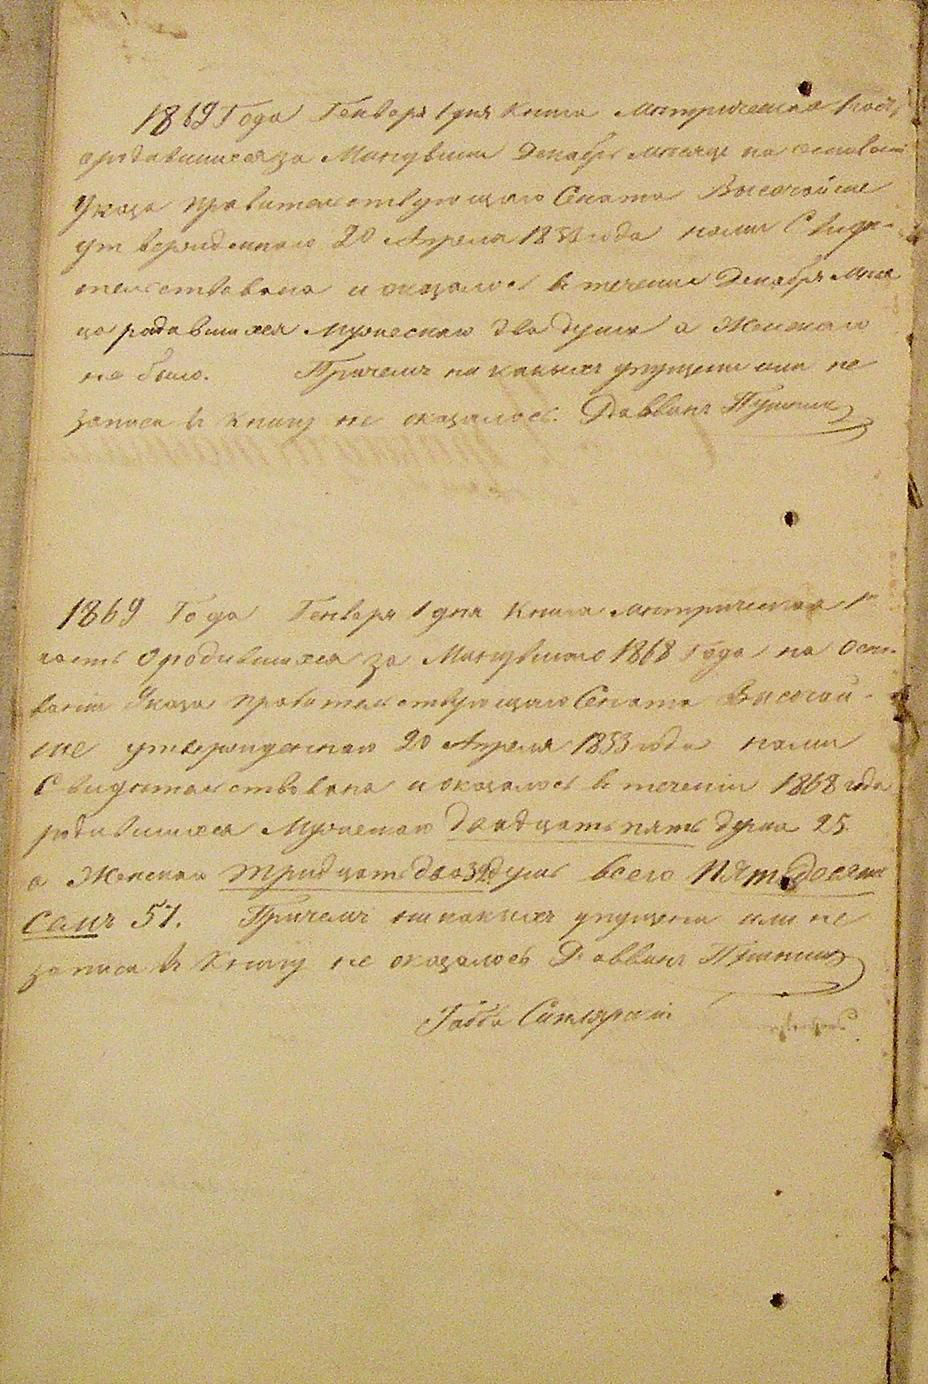 1869 Года Генваря 1 дня книга метрическая 1 часть
ородившихся за Минувшии Декабрь месяце на основани
Указа правительствующаго Сената Высочайше
утвержденнаго 20 Апреля 1853 года нами Свиде-
тельствована и оказалось в течении Декабря меся
ца родившихся Мужескаго два души а Женскаго
не было. Причемъ ни какихъ упущении или не
записа в книгу не оказалось. Раввинъ
1869 Года Генваря 1 дня книга метрическая 1
часть ородившихся за Минувшаго 1868 Года на осно-
вании Указа правительствующаго Сената Высочай-
ше утвержденнаго 20 Апреля 1853 года нами
Свидетельствована и оказалось в течении 1868 года
родившихся Мужескаго двадцать пять душа 25
а Женскаго тридцать два 32 душь всего пятьдесят
семь 57. Причемъ ни какихъ упущении или не
записа в книгу не оказалось Раввинъ